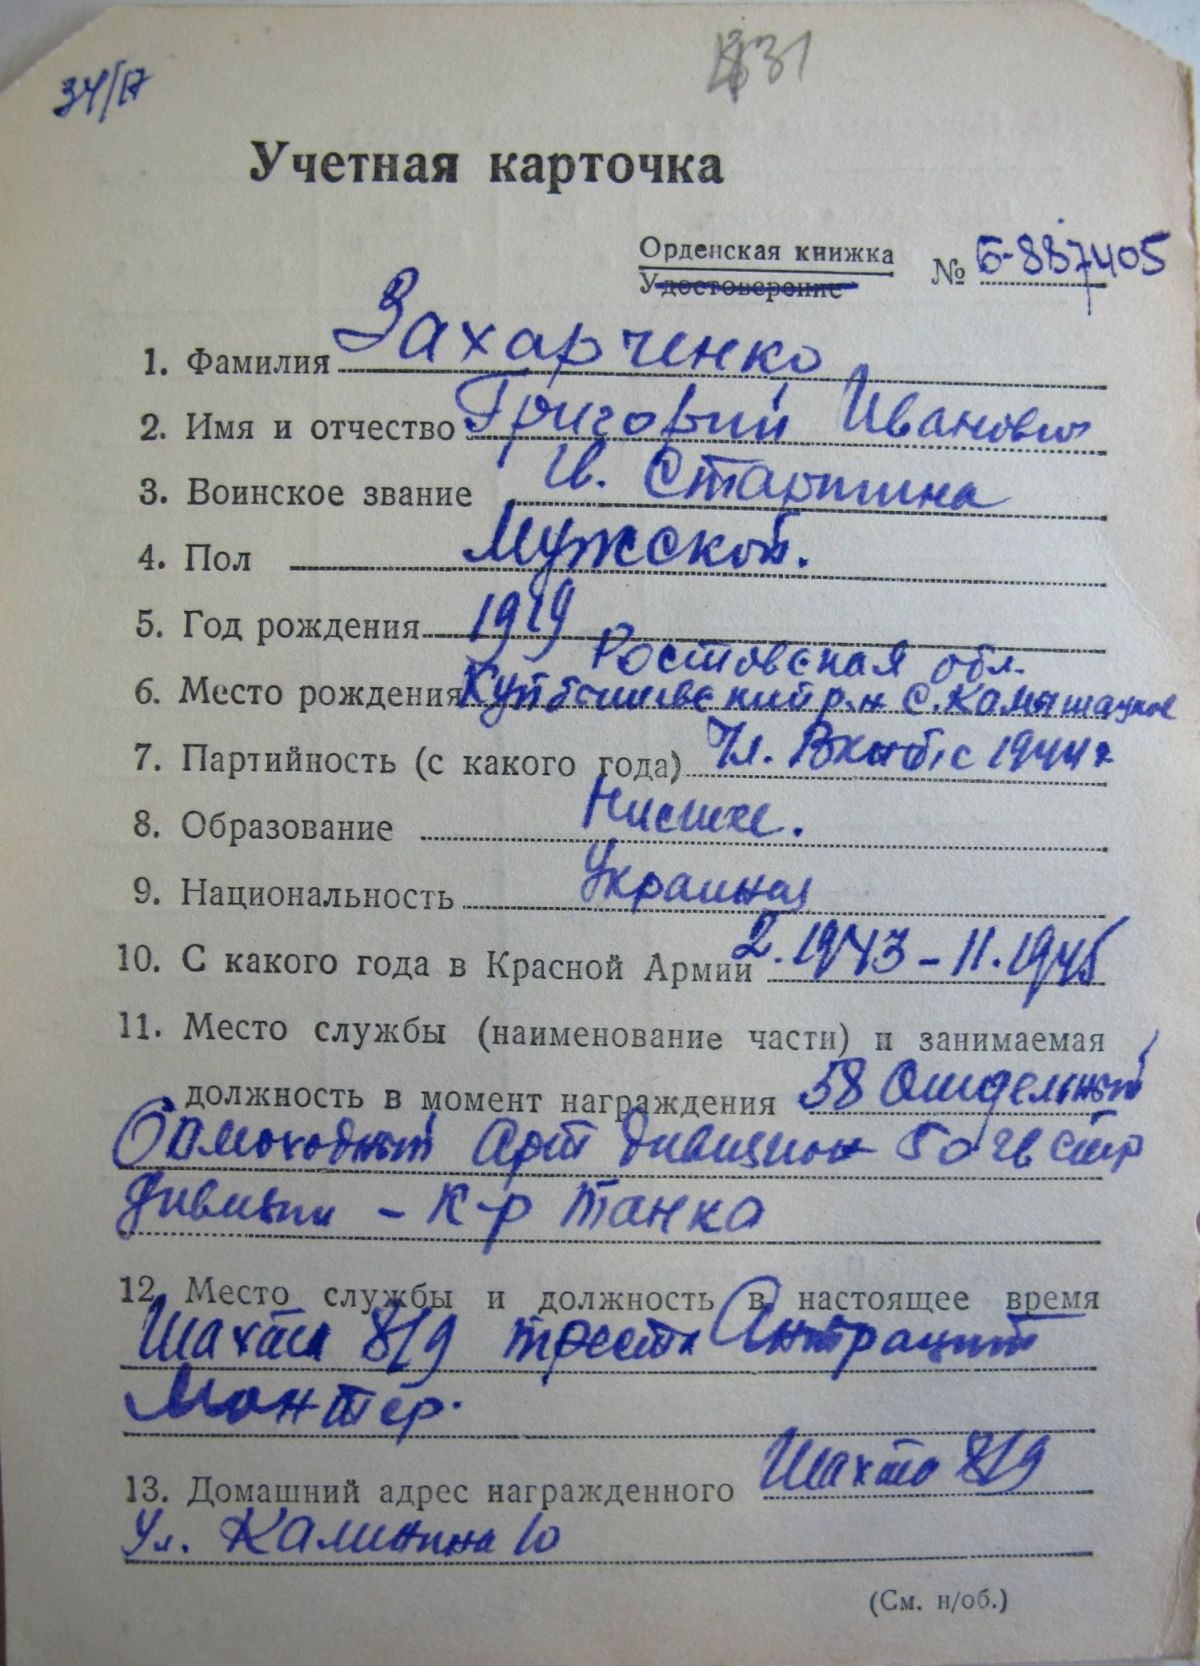 34/17
31
Учетная карточка
Орденская книжка
Удостоверение
№ Б-887405
1. Фамилия Захарченко
2. Имя и отчество Григорий Иванович
3. Воинское звание Гв. Старшина
4. Пол Мужской.
5. Год рождения 1919
Ростовская обл.
6. Место рождения Куйбышевский р.н с.
7. Партийность (с какого года) Чл. ВКП(б) с 1944 г
8. Образование Низшее.
9. Национальность
10. С какого года в Красной Армии 2.1943 – 11.1945
11. Место службы (наименование части) и занимаемая
должность в момент награждения 58 Отдельный
Самоходный Арт дивизион 50 гв стр
дивизии – к-р танка
12. Место службы и должность в настоящее время
Шахта 8/9 треста Антрацит
Монтер.
13. Домашний адрес награжденного Шахта 8/9
Ул. Калинина 10
(См. н/об.)